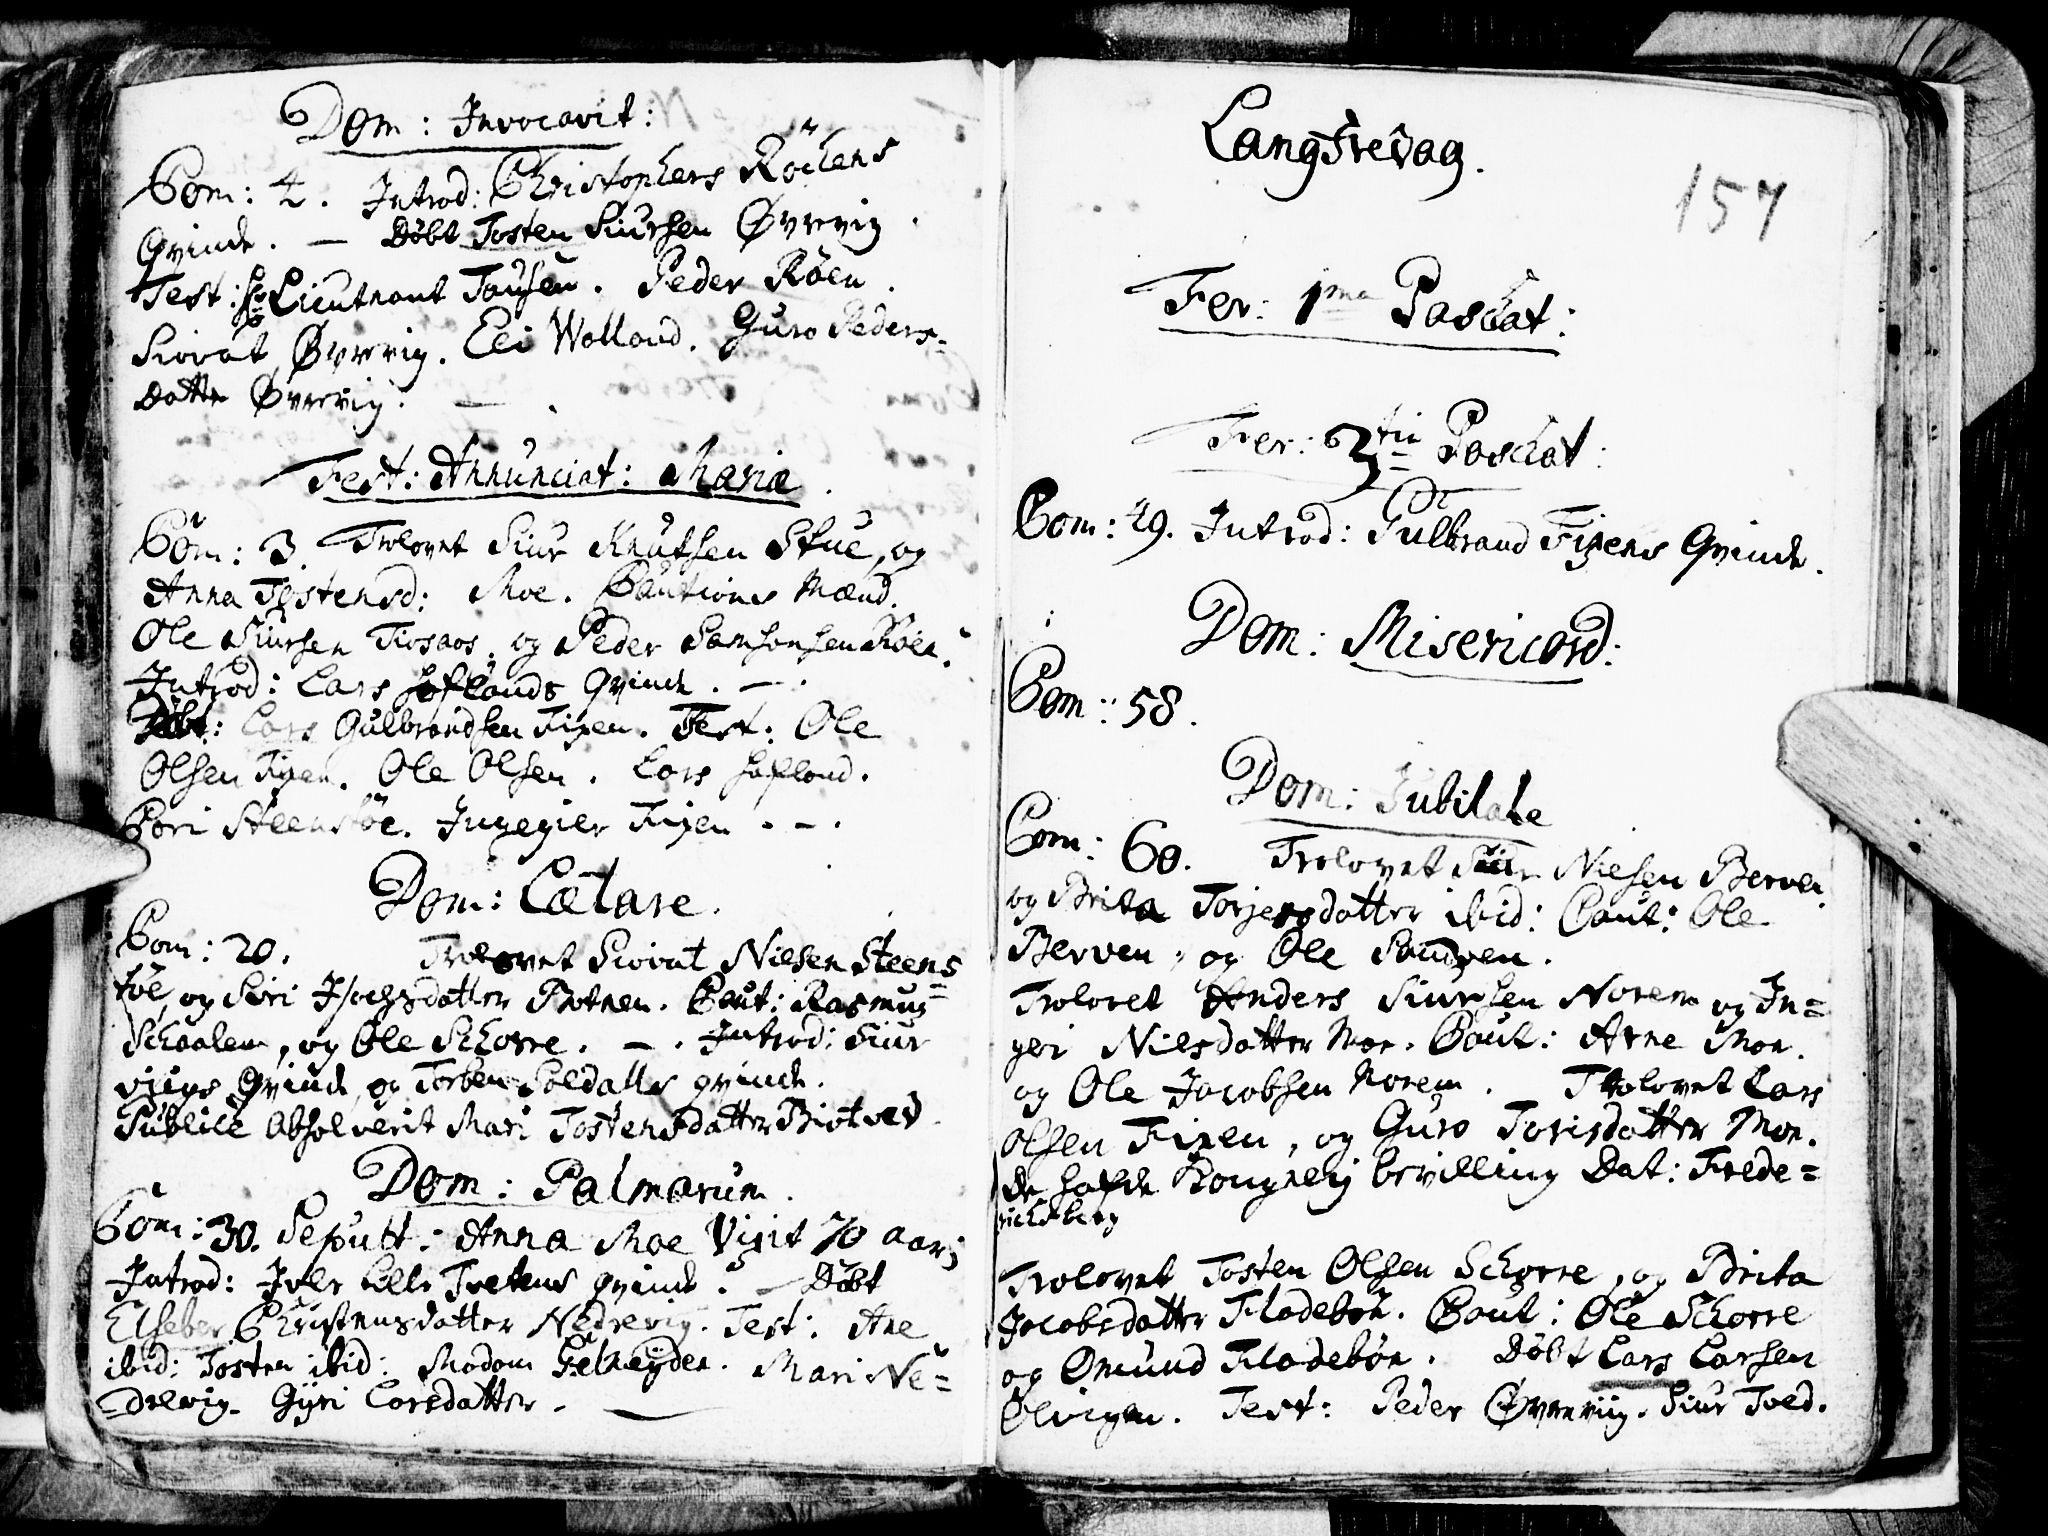 Dom: Invocavit:
Com: 4. Introd: Christophers Röthens
Qvinde. — Döbt Tosten Siursen Øvrevig.
Test: Hr Lieutnant Tousen. Peder Röen.
Siovat Øvrevig. Eli Wolland. Guro Peders-
Datter Øvrevig. —.
Fest: Annunciat: Mariæ.
Com: 3. Trolovet Siur Knutsen Stue, og
Anna Tostensd: Moe. Cautions Mænd.
Ole Siursen Tiosaos. og Peder Samsonsen Röen.
Introd: Lars Hoflands Qvinde. —.
Döbt: Lars Gulbrandsen Fixen. Test: Ole
Olsen Fixen. Ole Olsen. Lars Hofland.
Cori Steenstöe. Ingegier Fixen. —.
Dom: Lætare.
Com: 20. Trolovet Siovat Nielsen Steens=
töe, og Siri datter Botnen. Caut: Rasmus
Schaalen, og Ole Schorre. —. Introd: Siur
Qvinde og Torben Soldatts qvinde.
Publice Absolverit Mari Tostensdatter Biotved.
Dom: Palmarum.
Com: 30. Sepult: Anna Moe Vixit 70 aar;
Introd: Iver Lille Tvetens qvinde. — Döbt
Elseber Christensdatter Nedrevig. Test: Ane
ibid: Tosten ibid: Madam Gelmeyden. Mari Ne=
drevig. Gyri Larsdatter. —
Langfredag.
157
Fer: 1ma Paschat:
Fer: 3tia Paschat:
Com: 49. Introd: Gulbrand Fixens Qvinde.
Dom: Misericord:
Com: 58.
Dom: Jubilate
Com: 60. Trolovet Siur Nielsen Berven.
og Brita Torjersdatter ibid: Caut: Ole
Berven, og Ole Sandven.
Trolovet Anders Siursen Norem og In=
geri Nilsdatter Moe. Caut: Arne Moe.
og Ole Jacobsen Norem. Trolovet Lars
Olsen Fixen, og Guro Torisdatter Moe.
De hafde Kongelig bevilling Dat: Frede=
richsberg
Trolovet Tosten Olsen Schorre, og Brita
Jacobsdatter Fladebön. Caut: Ole Schorre
og Omund Fladebön. Döbt Lars Larsen
Olvigen. Test: Peder Øvreviig. Siur Tved.